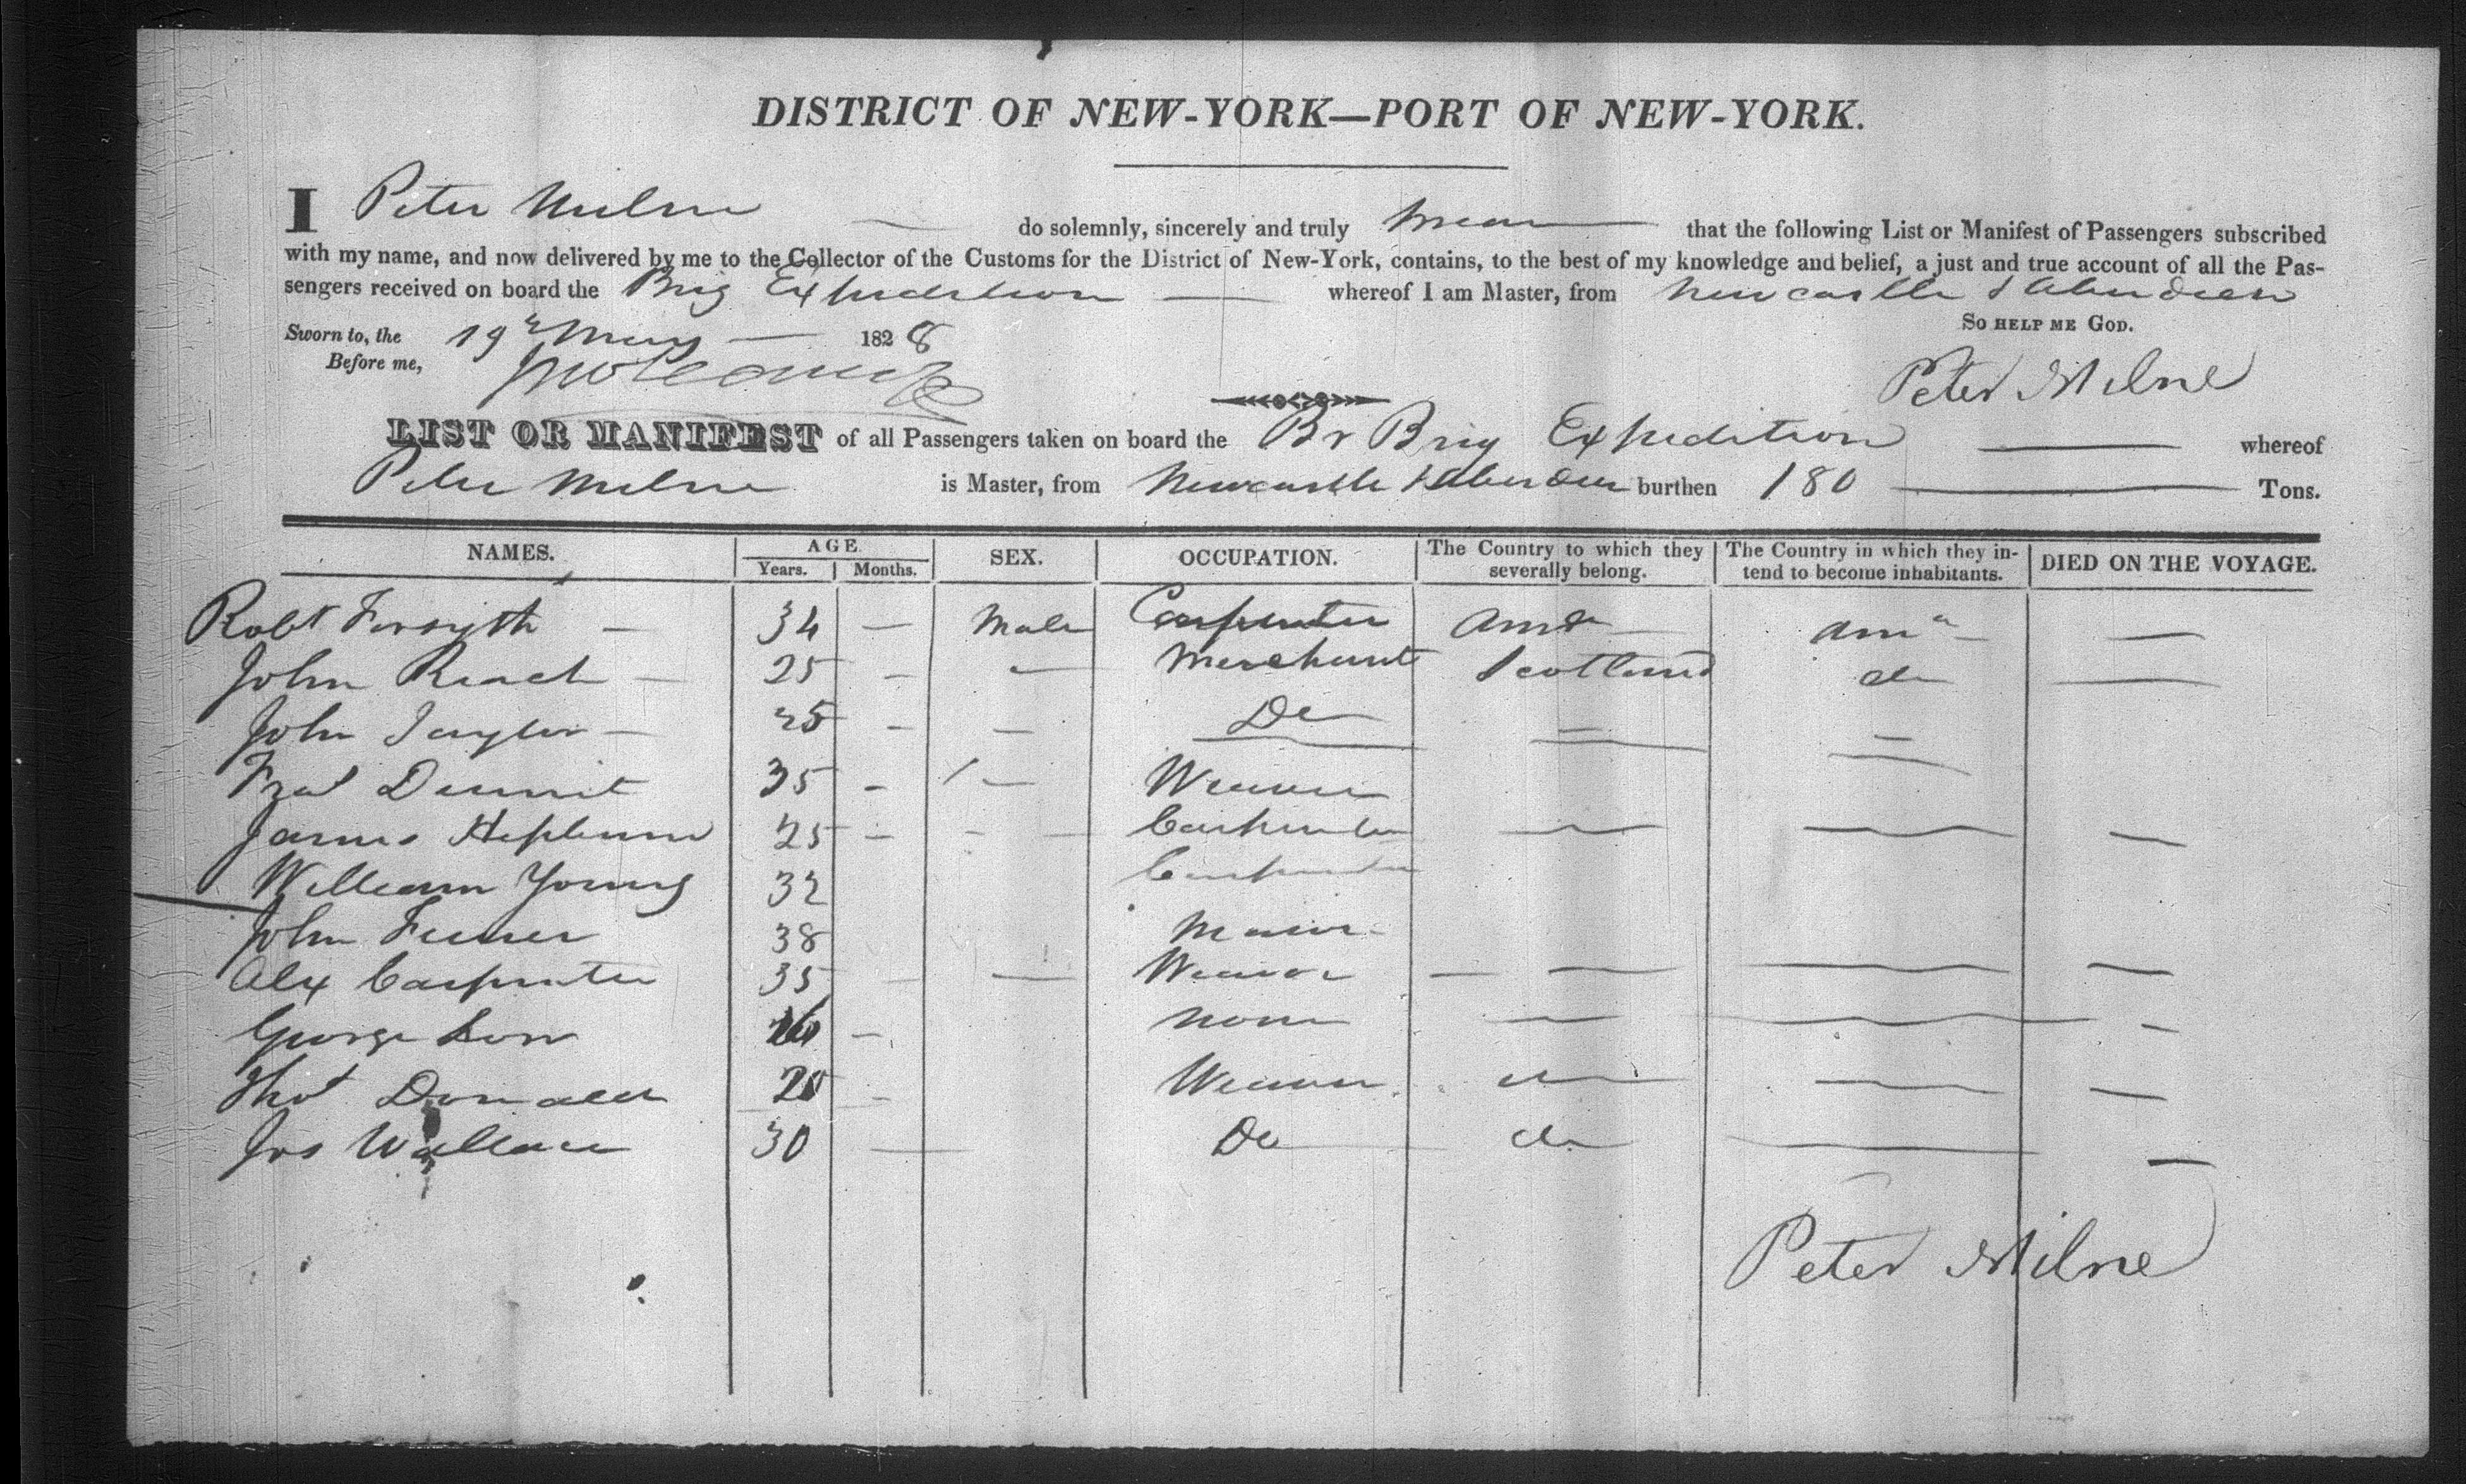 DISTRICT OF NEW-YORK—PORT OF NEW-YORK.
I Peter Milne do solemnly, sincerely and truly swear that the following List or Manifest of Passengers subscribed
with my name, and now delivered by me to the Collector of the Customs for the District of New-York, contains, to the best of my knowledge and belief, a just and true account of all the Pas-
sengers received on board the Brig Expedition whereof I am Master, from Newcastle & Aberdeen
So help me God.
Sworn to, the 19 May 1828
Before me,
Peter Milne
LIST OR MANIFEST of all Passengers taken on board the Br Brig Expedition whereof
Peter Milne is Master, from Newcastle & Aberdeen burthen 180 Tons.
NAMES. AGE Years. Months. SEX. OCCUPATION. The Country to which they severally belong. The Country in which they in-tend to become inhabitants. DIED ON THE VOYAGE.
Robt Forsyth — 34 — Male Carpenter Ama Ama —
John Reach — 25 — Merchant Scotland do —
John Taylor — 25 — — Do — —
35 — — Weaver
James Hepburn 25 — — Carpenter — — —
William Young 32 Carpenter
John 38 Mason
Alex Carpenter 35 — — Weaver — — —
George 16 — None — — —
Thos Donald 20 — Weaver do — —
Jos Wallace 30 — Do do — —
Peter Milne